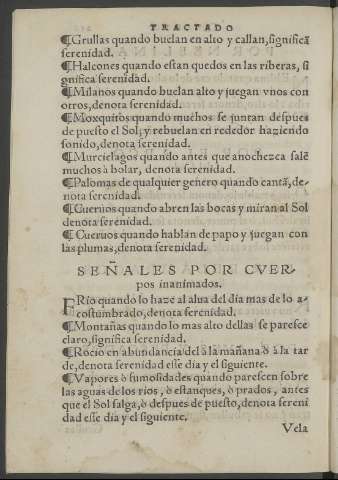 TRACTADO
¶Grullas quando buelan en alto y callan, significã
serenidad.
¶Halcones quando estan quedos en las riberas, si
gnifica serenidad.
¶Milanos quando buelan alto y juegan vnos con
otros, denota serenidad.
¶Moxquitos quando muchos se juntan despues
de puesto el Sol, y rebuelan en rededor haziendo
sonido, denota serenidad.
¶Murcielagos quando antes que anochezca salẽ
muchos à bolar, denota serenidad.
¶Palomas de qualquier genero quando cantã, de-
nota serenidad.
¶Cueruos quando abren las bocas y miran al Sol
denota serenidad.
¶Cueruos quando hablan de papo y juegan con
las plumas, denota serenidad.
SEÑALES POR CVER-
pos inanimados.
FRio quando lo haze al alua del dia mas de lo a-
costumbrado, denota serenidad.
¶Montañas quando lo mas alto dellas se paresce
claro, significa serenidad.
¶Rocio en abundancia del à la mañana ò à la tar
de, denota serenidad esse dia y el siguiente.
¶Vapores ò fumosidades quando parescen sobre
las aguas de los rios, ò estanques, ò prados, antes
que el Sol salga, ò despues de puesto, denota sereni
dad esse dia y el siguiente.
Vela